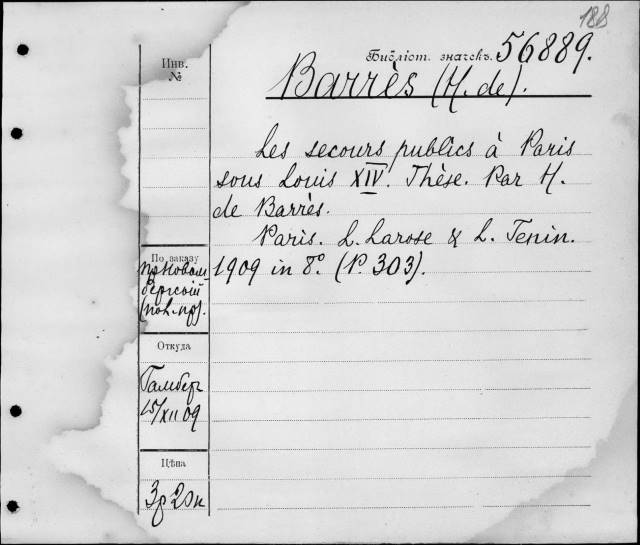 188
Библіот. значекъ. 56889.
Инв.
№
Barrès (H. de).
Les secours publics à Paris
sous Louis XIV. Thèse. Par H.
de Barrès.
Paris. L. Larose & L. Tenin.
1909 in 8°. (P. 303).
По заказу
Откуда
15/XII 09
Цѣна
3р 20к